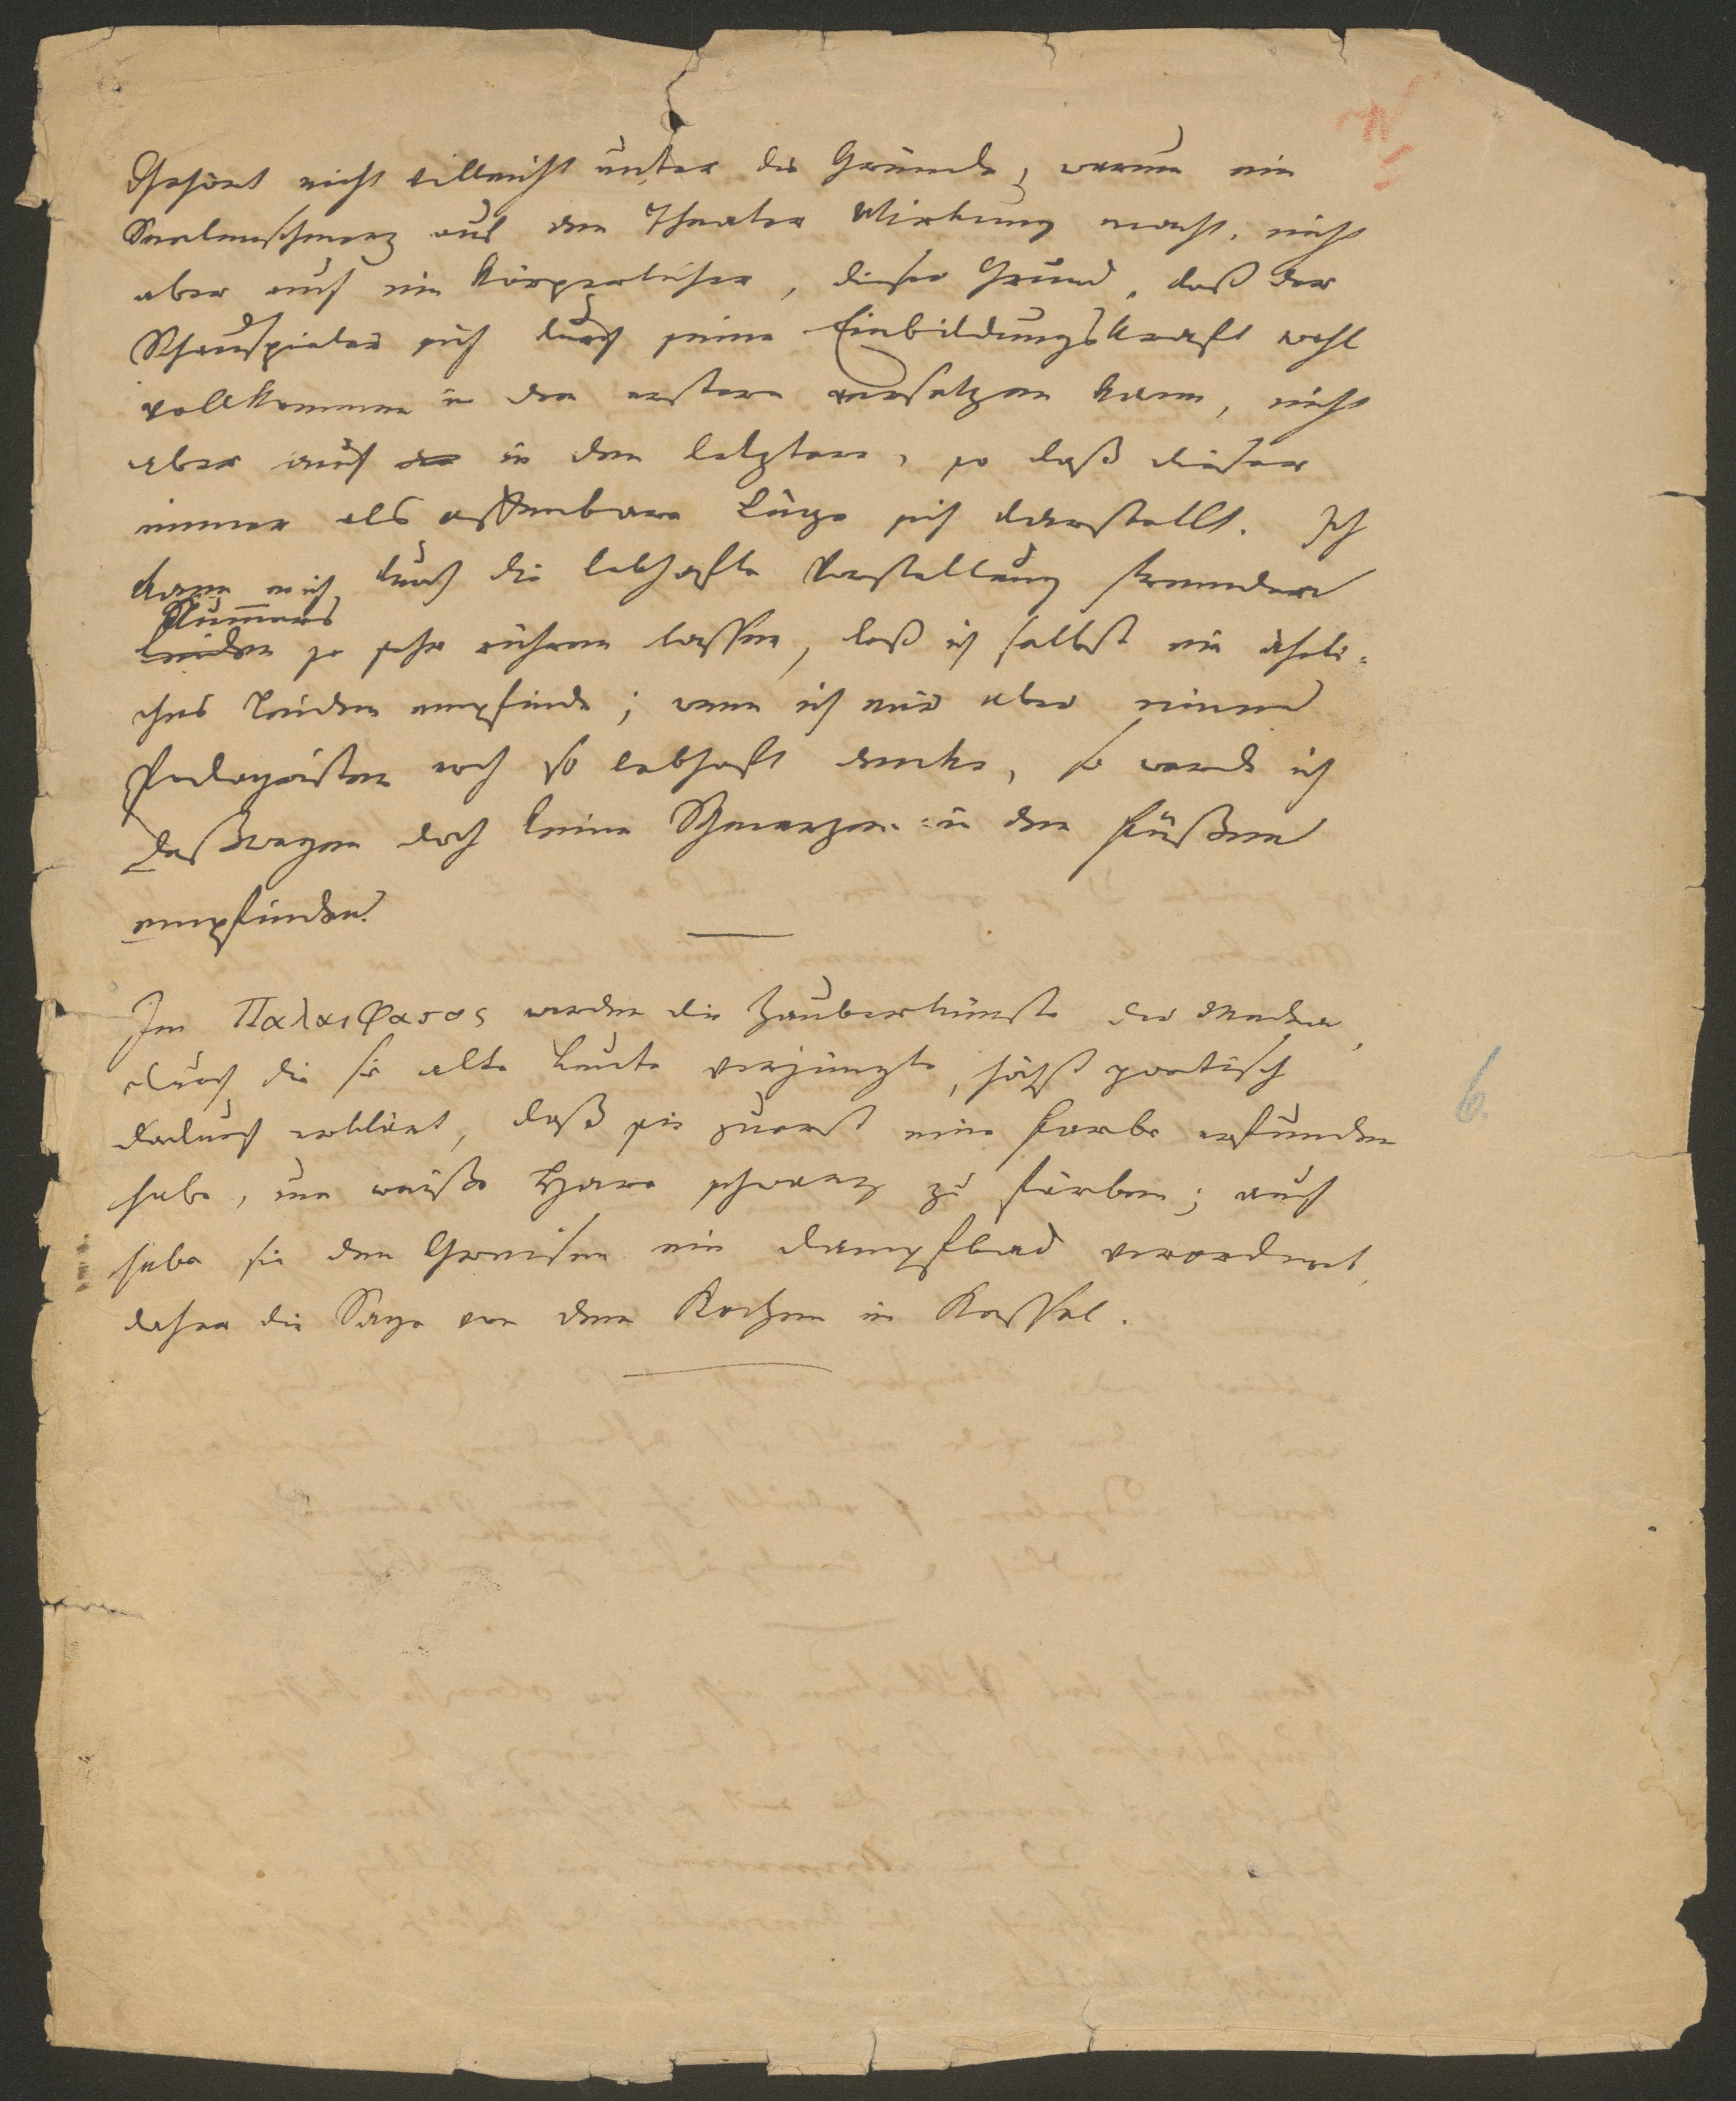 Gehört nicht villeicht unter die Gründe, warum ein
Seelenschmerz auf dem Theater Wirkung macht, nicht
aber auch ein körperlicher, dieser Grund, daß der
Schauspieler sich durch seine Einbildungskraft wohl
vollkommen in den erstern versetzen kann, nicht
aber auch in den letztern, so daß dieser
immer als offenbare Lüge sich darstellt. Ich
kann mich durch die lebhafte Vorstellung fremden
Kum̅ers
Leiden so sehr rühren lassen, daß ich selbst ein ähnli-
ches Leiden empfinde; wenn ich mir aber einen
Podagristen noch so lebhaft denke, so werde ich
deßwegen doch keine Schmerzen in den Füßen
empfinden.
Im Παλαιφατος werden die Zauberkünste der Medea,
durch die sie alte Leute verjüngte, höchst poetisch
dadurch erklärt, daß sie zuerst eine Farbe erfunden
habe, um weiße Haare schwarz zu färben; auch
habe sie den Greisen ein Dampfbad verordnet,
daher die Sage von dem Kochen im Kessel.
6.